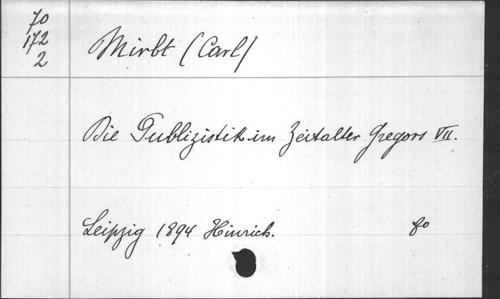 70
172
2
Mirbt (Carl)
Die Publizistik im Zeitalter Gregors VII.
Leipzig 1894 Hinrich. 8o